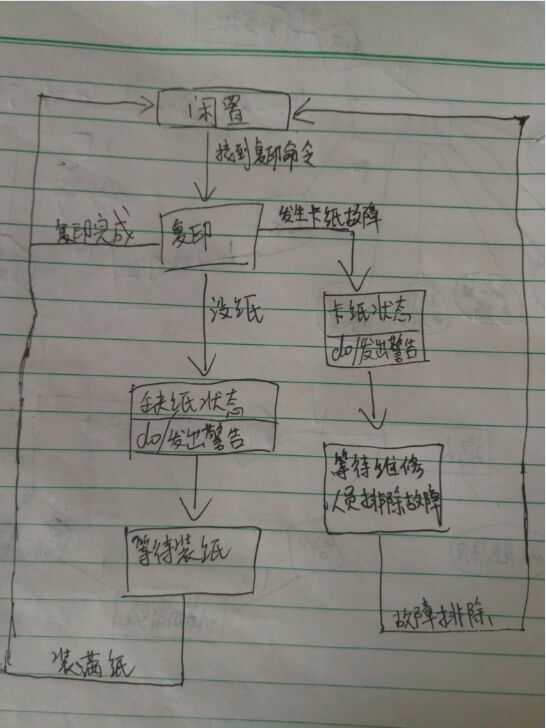 闲置
接到复印命令
复印完成
复印
发生卡纸故障
没纸
卡纸状态
do/发出警告
缺纸状态
do/发出警告
等待维修
人员排除故障
等待装纸
故障排除
装满纸